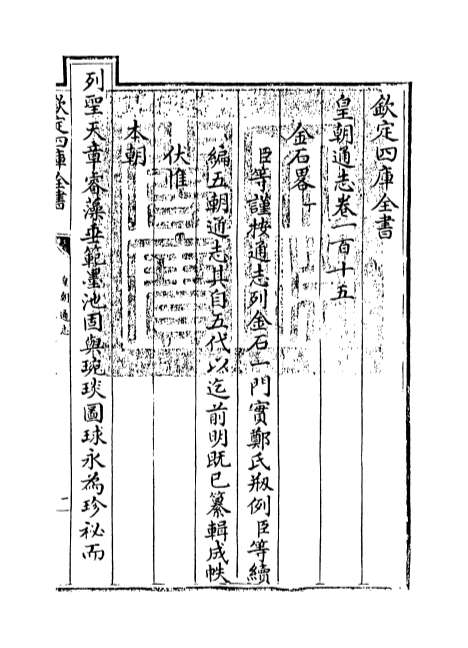 欽定四庫全書
皇朝通志卷一百十五
金石畧一
臣等謹按通志列金石一門實鄭氏剏例臣等續
編五朝通志其自五代以迄前明既已纂輯成帙
伏惟
本朝
列聖天章睿藻垂範墨池固與琬琰圖球永為珍祕而
欽定四庫全書
皇朝通志